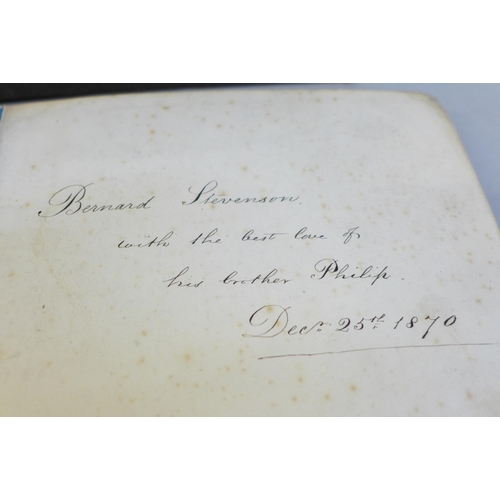 Bernard Stevenson.
with the best love of
his brother Philip.
Decr. 25th. 1870